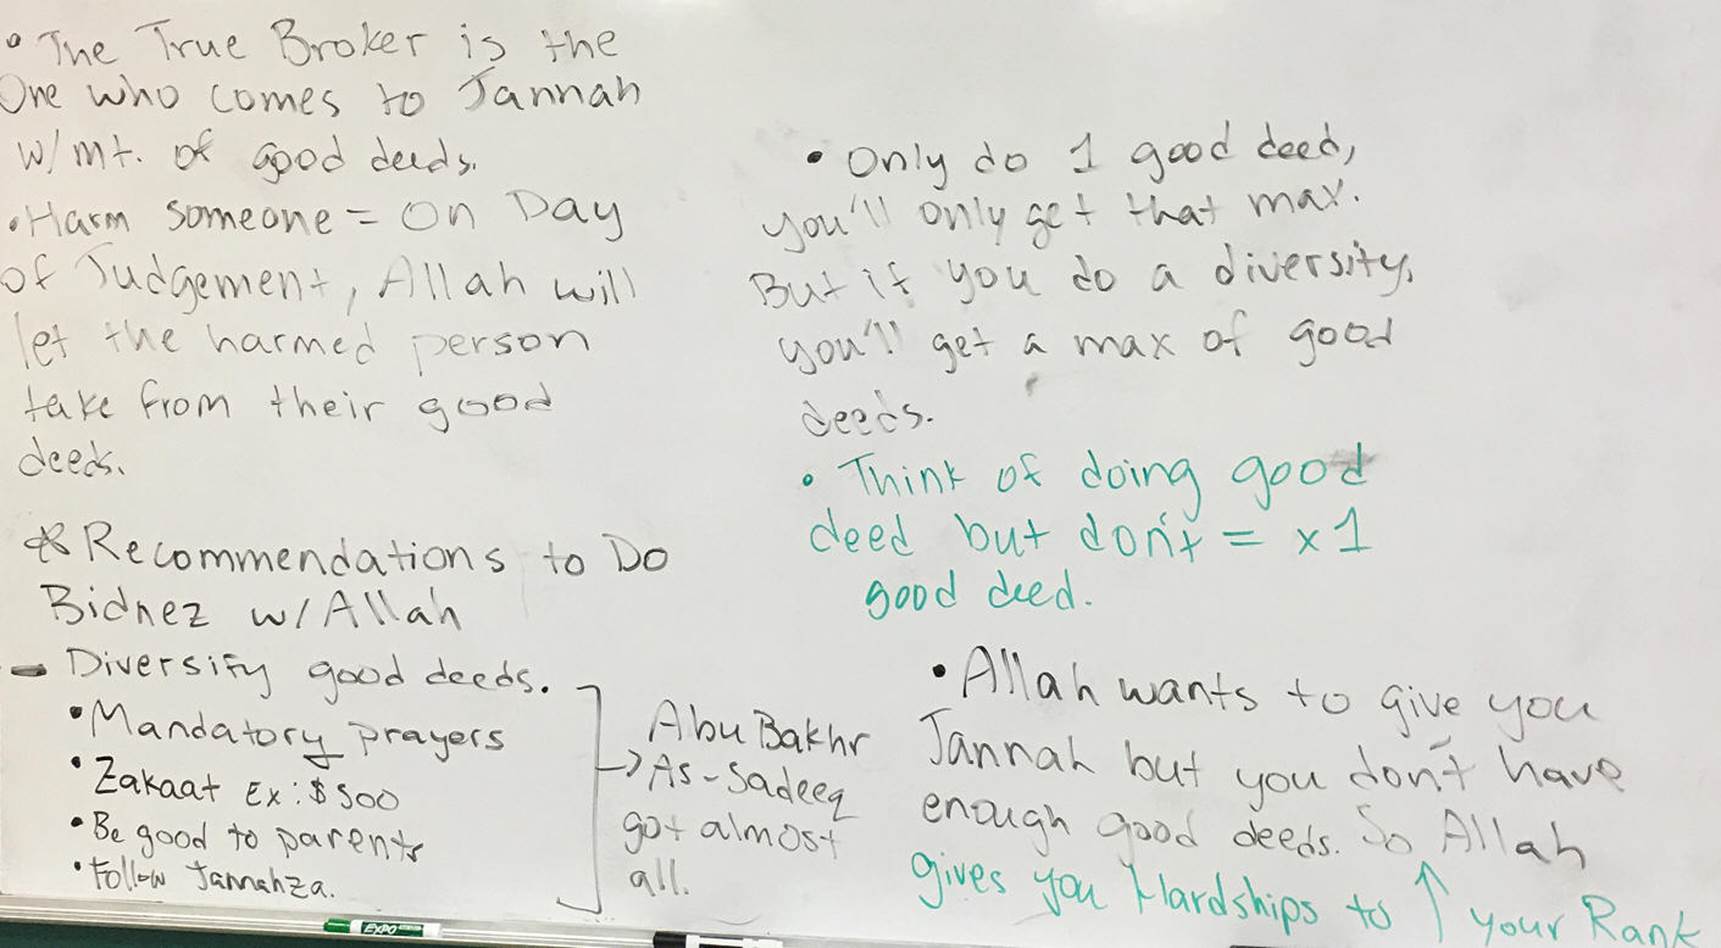 • The True Broker is the
One who comes to Jannah
w/mt. of good deeds.
• Harm someone = On Day
of Judgement, Allah will
let the harmed person
take from their good
deeds.
* Recommendations to Do
Bidnez w/Allah
- Diversify good deeds.
• Mandatory prayers
• Zakaat Ex: $500
• Be good to parents
• Follow Jannahza.
Abu Bakhr
→ As-Sadeeq
got almost
all.
• Only do 1 good deed,
you'll only get that max.
But if you do a diversity,
you'll get a max of good
deeds.
• Think of doing good
deed but don't = x1
good deed.
• Allah wants to give you
Jannah but you don't have
enough good deeds. So Allah
gives you Hardships to ↑ your Rank
EXPO